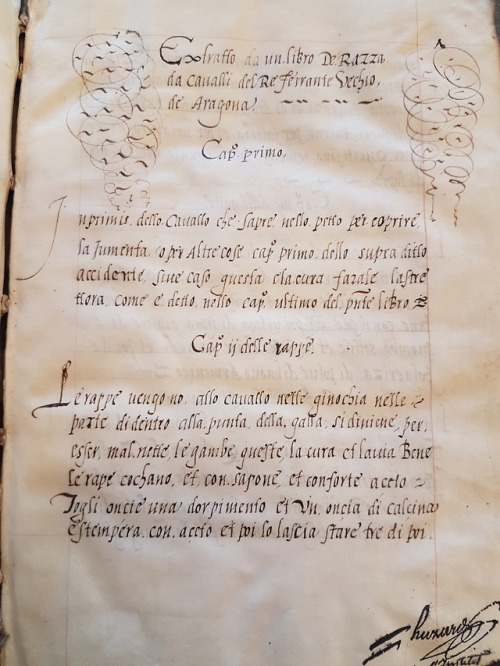 Extratto da un libro De Razza
da Cavalli del Re Ferrante Vechio,
de Aragona.
Cap.º primo.
Inprimis dello Cavallo che s'apre nello petto per coprire
la Jumenta o per Altre cose cap.º primo dello supra ditto
accidente, siue caso questa e la cura farale lastre
ttora, come e detto nello cap.º ultimo del pnte libro
Cap.º ij delle rappe.
Le rappe uengono allo cavallo nelle ginochia nelle
parte di dentro alla punta, della, si diviene, per.
esser, mal, nette, le gambe, queste, la cura et lauia Bene
le rape cochano, et, con, sapone, et conforte aceto
Togli oncie una dorpimento et Un, oncia di calcina
e stempera, con, aceto et poi lo lascia stare tre di poi.
huzard